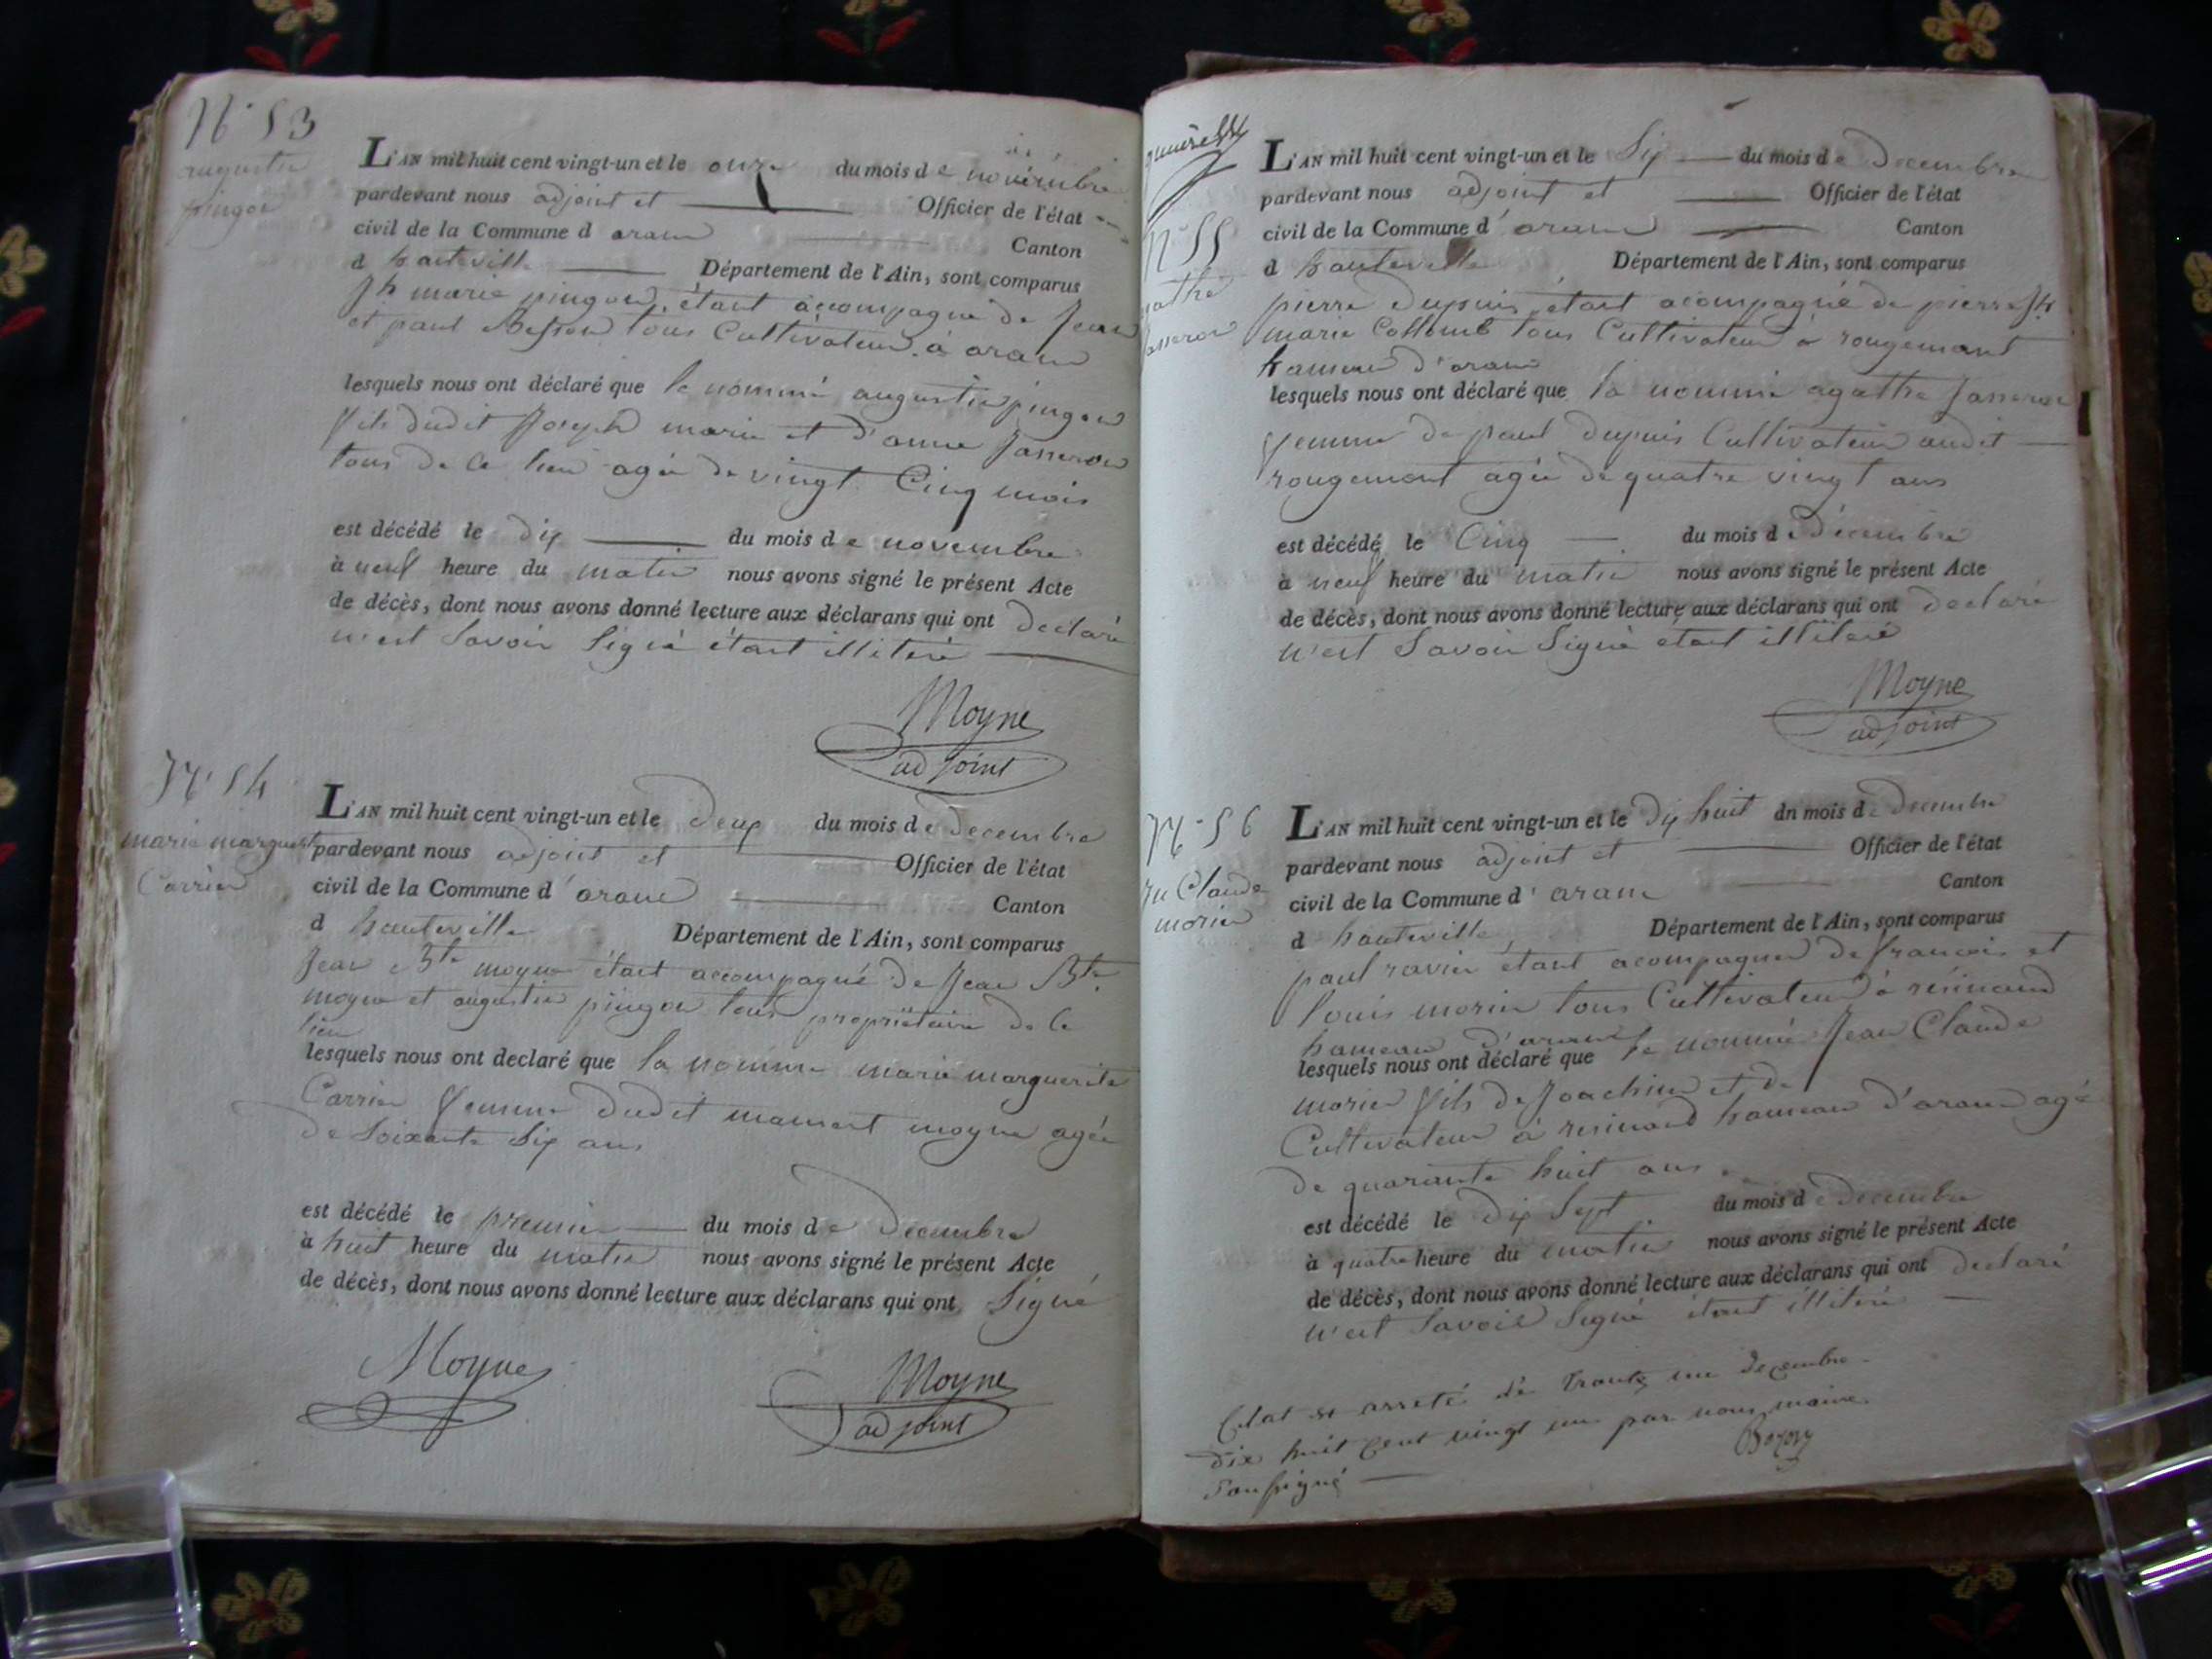 N° 53
augustin
pingon
L'AN mil huit cent vingt-un et le onze du mois de novembre
pardevant nous adjoint et Officier de l'état
civil de la Commune d aranc Canton
d hauteville Département de l'Ain, sont comparus
Jh marie pingon, étant accompagné de Jean
et paul Besson tous Cultivateur à aranc
lesquels nous ont déclaré que le nommé augustin pingon
fils dudit Joseph marie et d'anne Jasseron
tous de ce lieu agée de vingt Cinq mois
est décédé le dix du mois de novembre
à neuf heure du matin nous avons signé le présent Acte
de décès, dont nous avons donné lecture aux déclarans qui ont declaré
n'est Savoir Signé étant illiteré
Moyne
adjoint
N° 54
marie marguerite
Carrier
L'AN mil huit cent vingt-un et le deux du mois de decembre
pardevant nous adjoint et Officier de l'état
civil de la Commune d'aranc Canton
d hauteville Département de l'Ain, sont comparus
Jean Bte moyne étant accompagné de Jean Bte
moyne et augustin pingon tous propriétaire de ce
lieu
lesquels nous ont declaré que la nomme marie marguerite
Carrier femme dudit moyne agée
de Soixante Six ans
est décédé le premier du mois de Decembre
à huit heure du matin nous avons signé le présent Acte
de décès, dont nous avons donné lecture aux déclarans qui ont Signé
Moyne
Moyne
adjoint
N° 55
agathe
Jasseron
L'AN mil huit cent vingt-un et le Six du mois de Decembre
pardevant nous adjoint et Officier de l'état
civil de la Commune d'aranc Canton
d hauteville Département de l'Ain, sont comparus
pierre dupuis étant acompagné de pierre Jh
marie Collomb tous Cultivateur à rougemont
hameau d'aranc
lesquels nous ont déclaré que la nommé agathe Jasseron
femme de paul dupuis Cultivateur audit
rougemont agée de quatre vingt ans
est décédé le Cinq du mois de Décembre
à neuf heure du matin nous avons signé le présent Acte
de décès, dont nous avons donné lecture aux déclarans qui ont declaré
n'est Savoir Signé étant illiteré
Moyne
adjoint
N° 56
Jn Claude
morin
L'AN mil huit cent vingt-un et le dix huit dn mois de Decembre
pardevant nous adjoint et Officier de l'état
civil de la Commune d'aranc Canton
d hauteville Département de l'Ain, sont comparus
paul ravier étant acompagner de francois et
louis morin tous Cultivateur à résinand
hameau d'aranc
lesquels nous ont déclaré que le nommé Jean Claude
morin fils de Joachim et de
Cultivateur à résinand hameau d'aranc agé
de quarante huit ans
est décédé le dix Sept du mois de Decembre
à quatre heure du matin nous avons signé le présent Acte
de décès, dont nous avons donné lecture aux déclarans qui ont declaré
n'est Savoir Signé étant illiteré
arreté le trente un decembre
dix huit cent vingt un par nous maire
soussigné